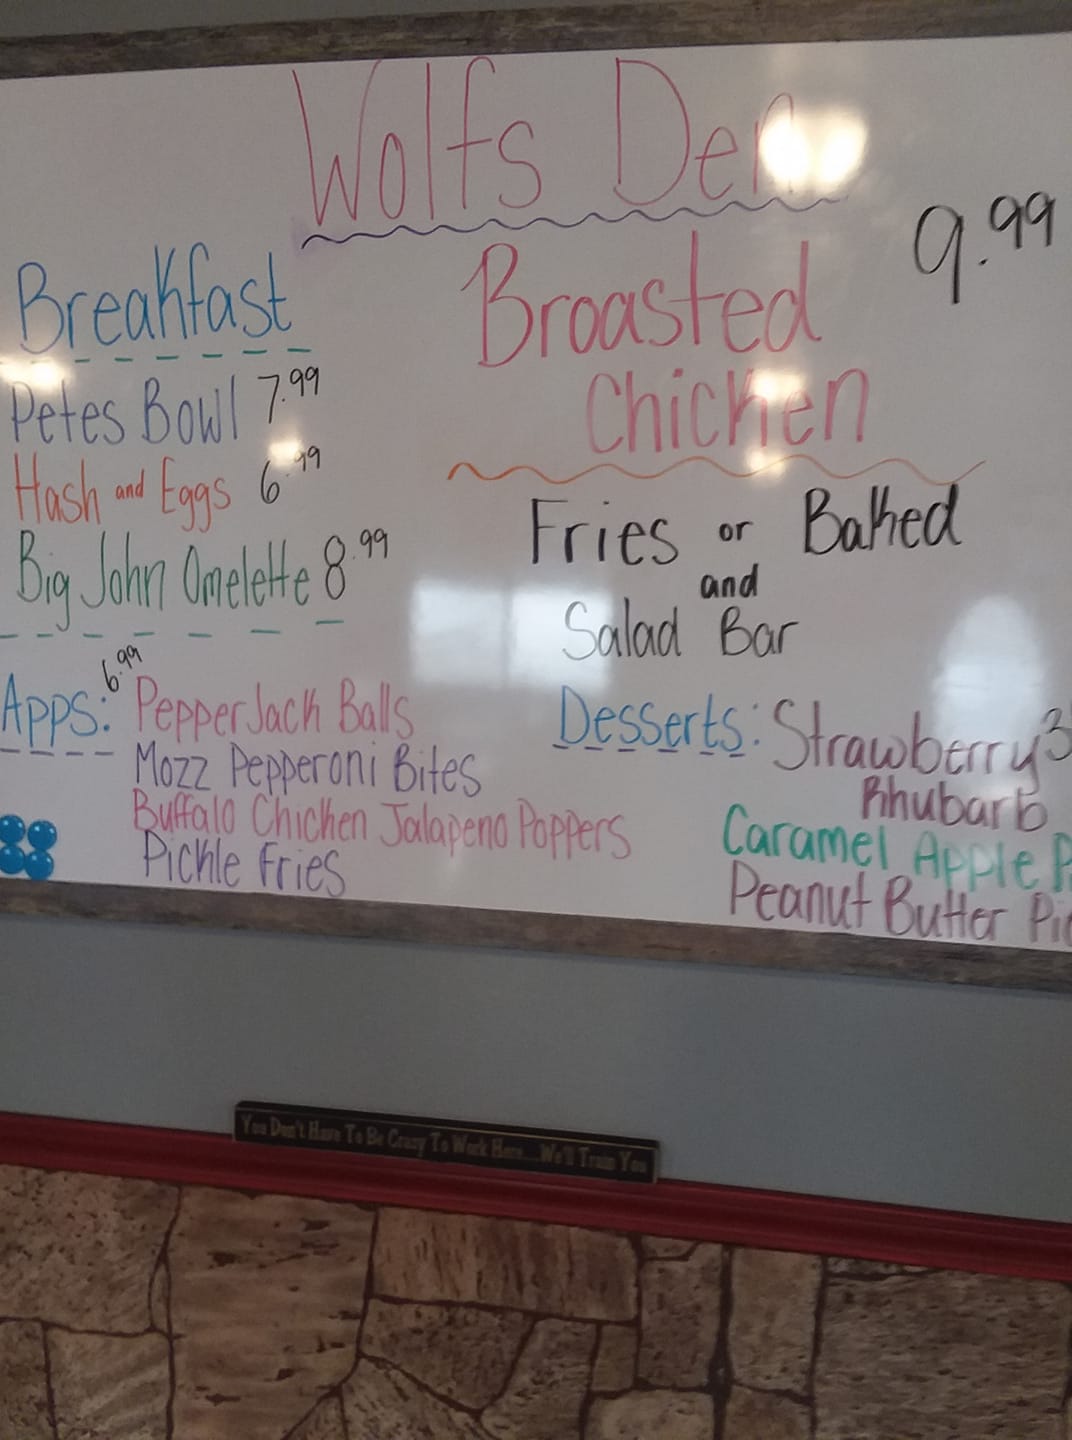 Wolfs Den
Breakfast
Petes Bowl 7.99
Hash and Eggs 6.99
Big John Omelette 8.99
Apps: 6.99 Pepper Jack Balls
Mozz Pepperoni Bites
Buffalo Chicken Jalapeno Poppers
Pickle Fries
9.99
Broasted
Chicken
Fries or Baked
and
Salad Bar
Desserts: Strawberry 3
Rhubarb
Caramel Apple P
Peanut Butter Pie
You Don't Have To Be Crazy To Work Here...We'll Train You